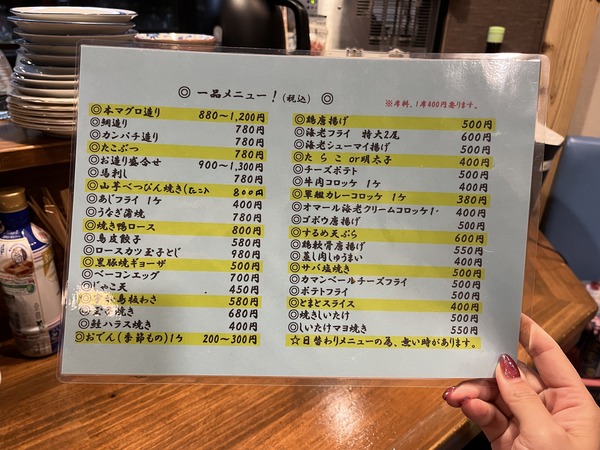 ◎ 一品メニュー！(税込) ◎
※席料、1席400円要ります。
◎本マグロ造り 880〜1,200円
◎鯛造り 780円
◎カンパチ造り 780円
◎たこぶつ 780円
◎お造り盛合せ 900〜1,300円
◎馬刺し 780円
◎山芋べっぴん焼き 800円
◎あじフライ 1ケ 400円
◎うなぎ蒲焼 780円
◎焼き鴨ロース 800円
◎鳥皮餃子 580円
◎ロースカツ玉子とじ 980円
◎黒豚焼ギョーザ 500円
◎ベーコンエッグ 700円
◎じゃこ天 450円
島板わさ 580円
焼き 680円
◎鮭ハラス焼き 400円
◎おでん(季節もの)1ケ 200〜300円
◎鶏唐揚げ 500円
◎海老フライ 特大2尾 600円
◎海老シューマイ揚げ 500円
◎たらこor明太子 400円
◎チーズポテト 500円
◎牛肉コロッケ 1ケ 400円
◎軍艦カレーコロッケ 1ケ 380円
◎オマール海老クリームコロッケ1ケ 400円
◎ゴボウ唐揚げ 500円
◎するめ天ぷら 600円
◎鶏軟骨唐揚げ 550円
◎蒸し肉しゅうまい 400円
◎サバ塩焼き 500円
◎カマンベールチーズフライ 500円
◎ポテトフライ 500円
◎とまとスライス 400円
◎焼きしいたけ 500円
◎しいたけマヨ焼き 550円
☆日替わりメニューの為、無い時があります。